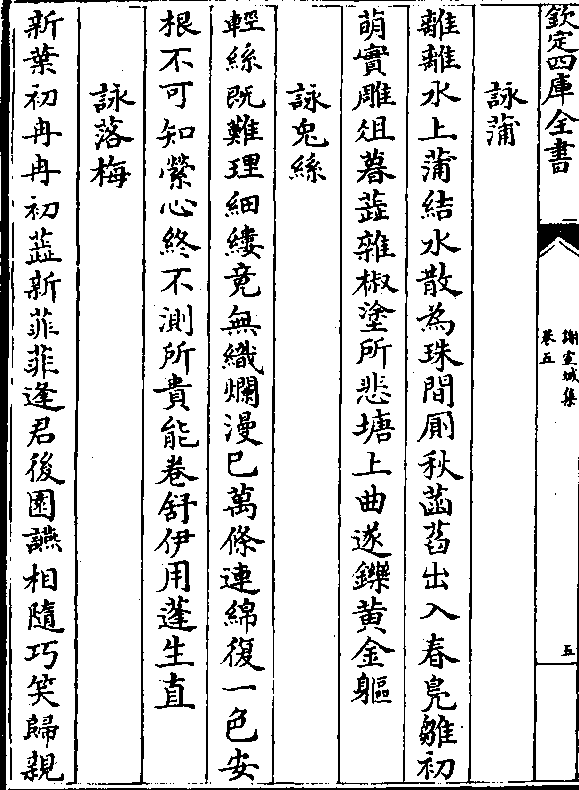 欽定四庫全書
謝宣城集
卷五
五
詠蒲
離離水上蒲結水散為珠間厠秋菡萏出入春鳧雛初
萌實雕俎暮蕋雜椒塗所悲塘上曲遂鑠黃金軀
詠兔絲
輕絲既難理細縷竟無織爛漫已萬條連綿復一色安
根不可知縈心終不測所貴能卷舒伊用蓬生直
詠落梅
新葉初冉冉初蕋新菲菲逢君後園讌相隨巧笑歸親